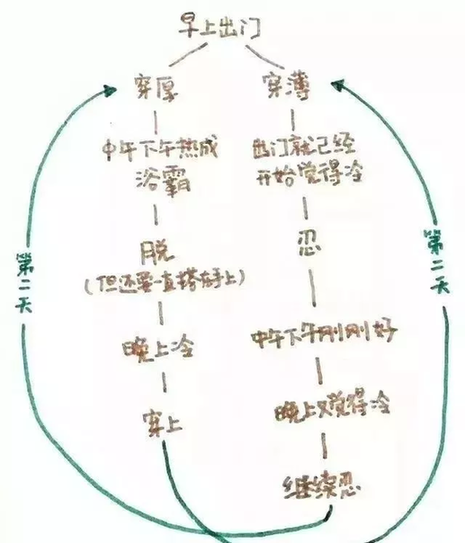 早上出门
穿厚
穿薄
中午下午热成
浴霸
出门就已经
开始觉得冷
脱
(但还要一直搭在手上)
忍
第二天
第二天
晚上冷
中午下午刚刚好
穿上
晚上又觉得冷
继续忍